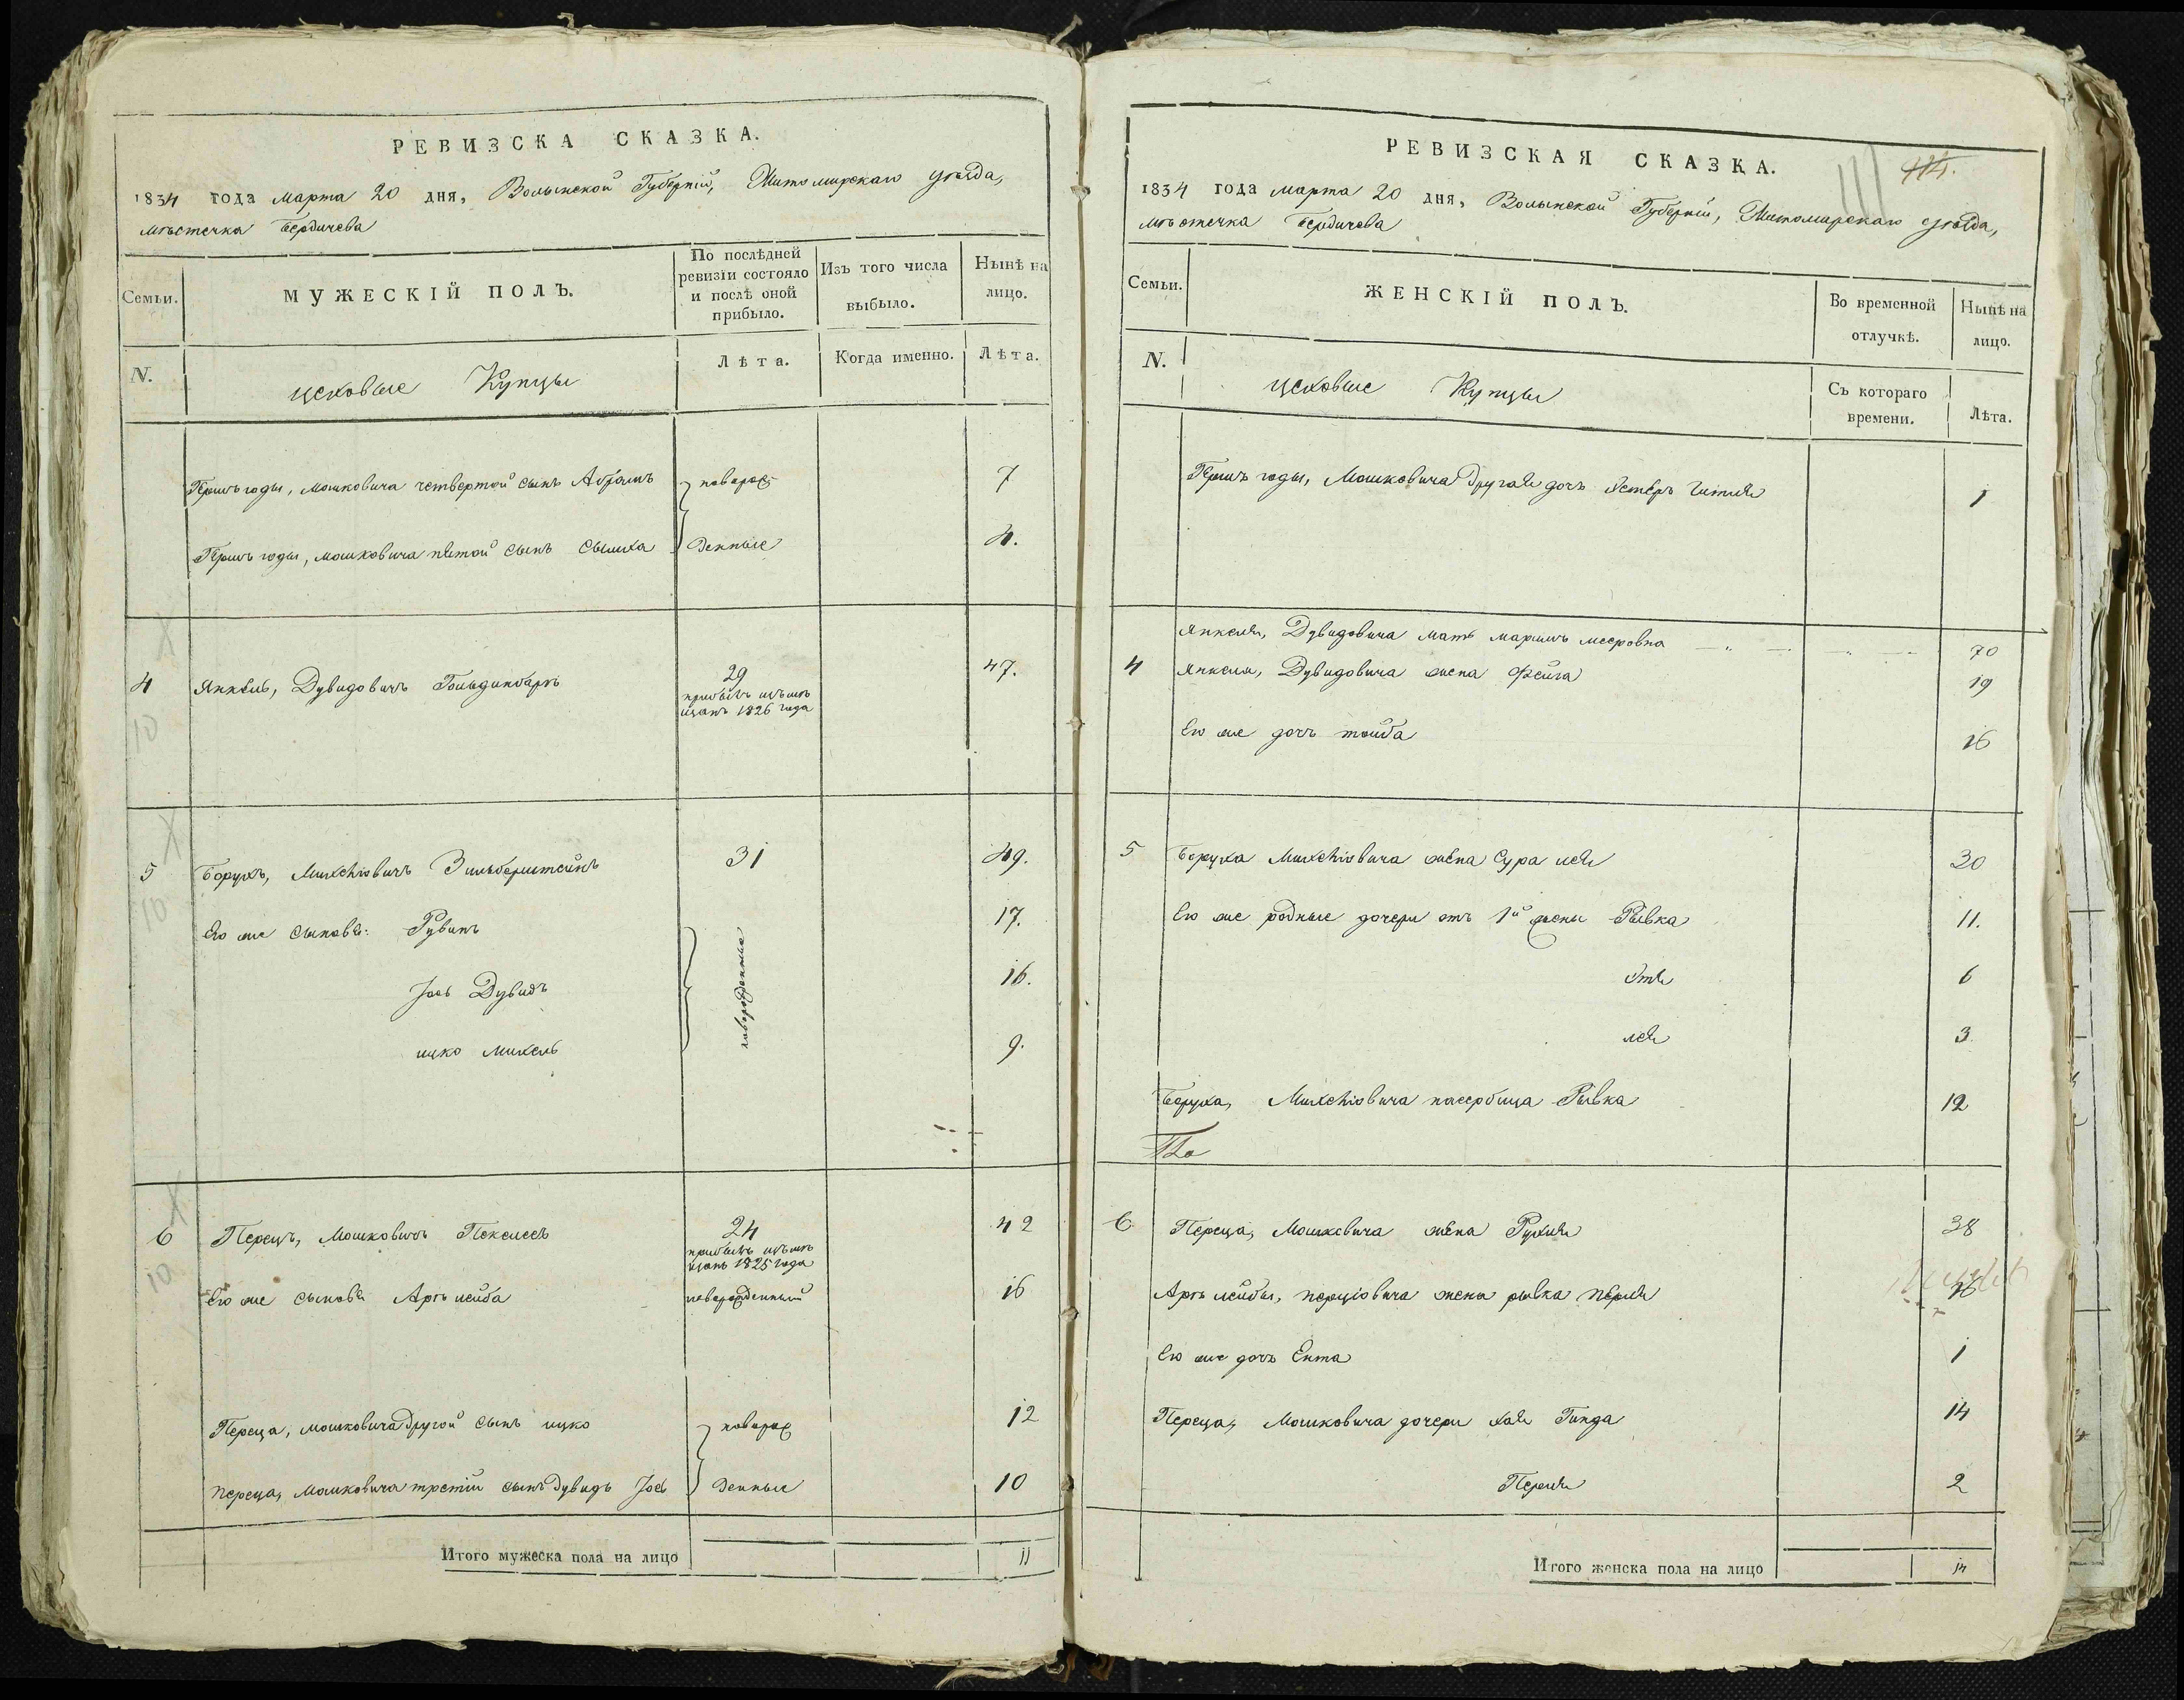 РЕВИЗСКА СКАЗКА.
1834 года марта 20 дня, Волынской Губерніи, Житомирскаго уѣзда,
мѣстечка Бердичева
Семьи.
МУЖЕСКІЙ ПОЛЪ.
По послѣдней ревизіи состояло и послѣ оной прибыло.
Изъ того числа выбыло.
Нынѣ на лицо.
N.
Купцы
Лѣта.
Когда именно.
Лѣта.
Мошковича четвертой сынъ Абрамъ новорож 7
Мошковича пятой сынъ Сымха денные 4.
4 Янкель, Дувидовичъ 29 47.
1826 года
10
5 Борухъ, Зильберштейнъ 31 49.
10
Его же сыновья: Рувинъ новорожденные 17.
Іось Дувидъ 16.
ицко михель 9.
6 Перецъ, Мошковичъ 24 42
1825 года
10
Его же сыновья Аръ лейба новорожденный 16
Переца, мошковича другой сынъ ицко новорож 12
переца, Мошковича третій сынъ Дувидъ Іось денные 10
Итого мужеска пола на лицо 11
РЕВИЗСКАЯ СКАЗКА.
1834 года марта 20 дня, Волынской Губерніи, Житомирскаго уѣзда,
мѣстечка Бердичева
Семьи.
ЖЕНСКІЙ ПОЛЪ.
Во временной отлучкѣ.
Нынѣ на лицо.
N.
Купцы
Съ котораго времени.
Лѣта.
Мошковича другая дочь Естеръ Гитля 1
Янкеля, Дувидовича мать маріимъ меэровна 70
4 Янкеля, Дувидовича жена Фейга 19
Его же дочь тойба 16
5 Боруха жена Сура лея 30
Его же родные дочери отъ 1й жены Рывка 11.
Этя 6
лея 3
Боруха, пасербица Рывка 12
6 Переца, Мошковича жена Рухля 38
Аръ лейбы, перціовича жена рывка перля 16
Его же дочь Ента 1
Переца, Мошковича дочери хая Гинда 14
Перля 2
Итого женска пола на лицо 14